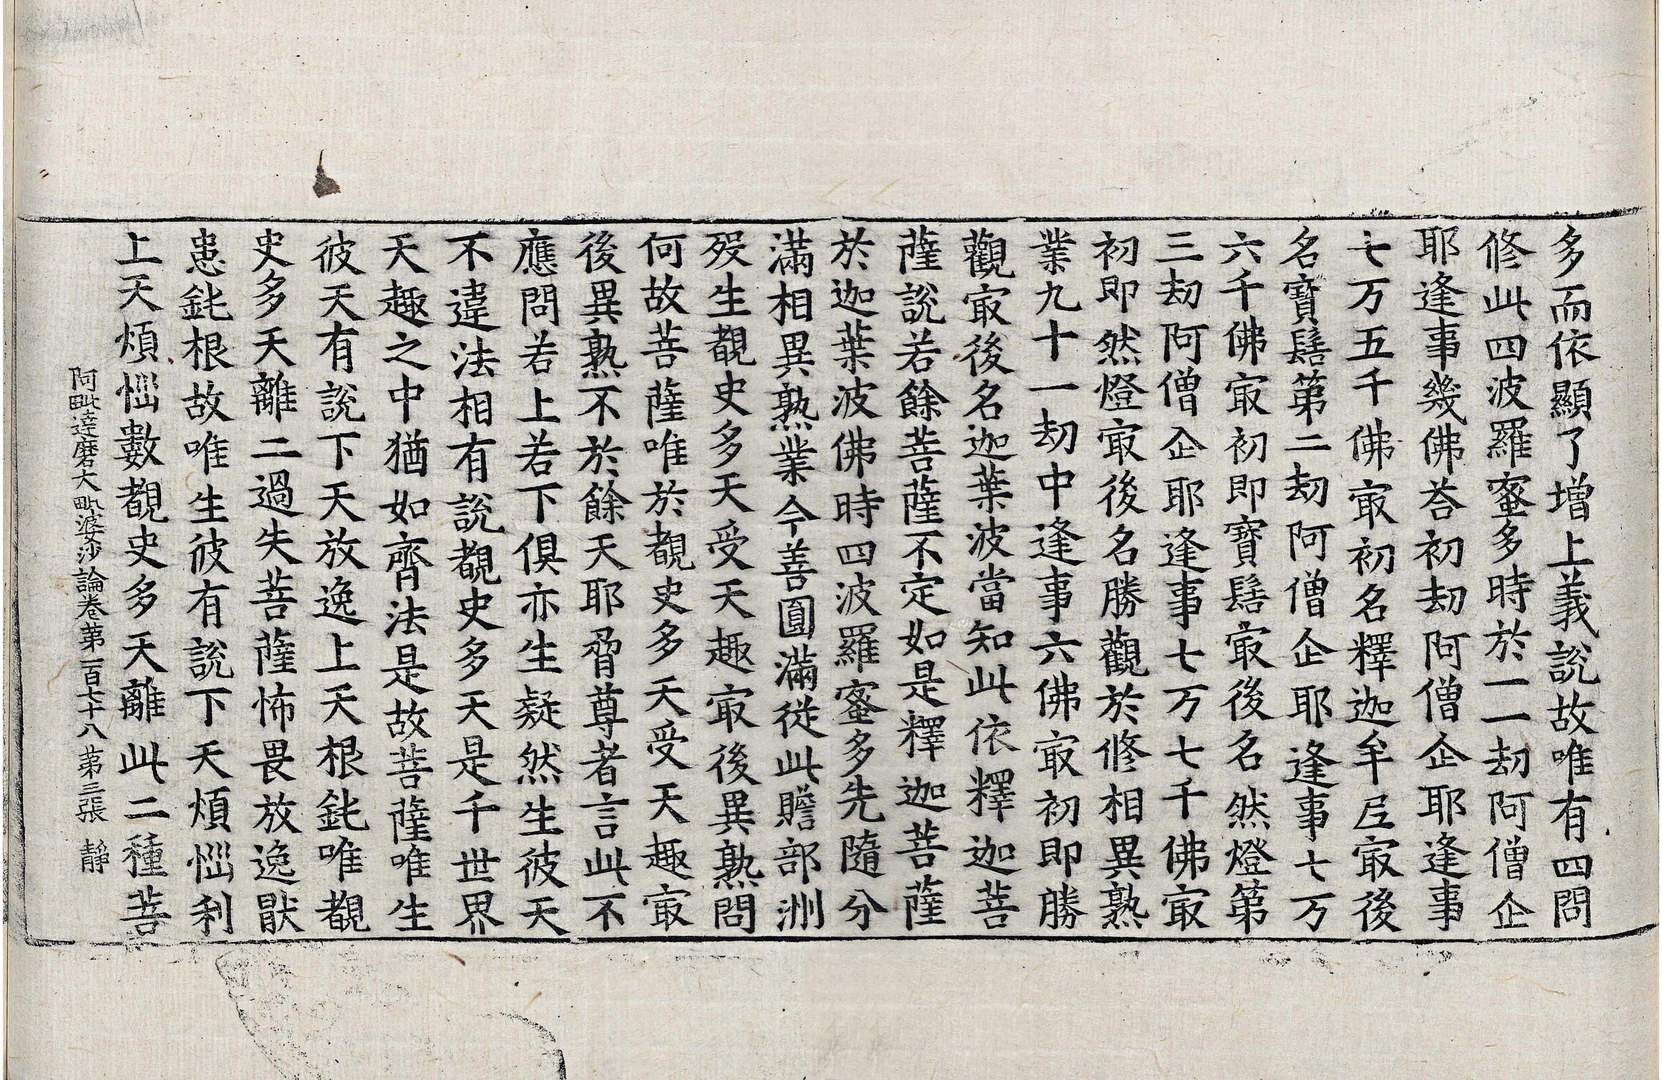 多而依顯了增上義說故唯有四問
修此四波羅蜜多時於一一劫阿僧企
耶逢事幾佛荅初劫阿僧企耶逢事
七万五千佛㝡初名釋迦牟𡰱㝡後
名寶髻第二劫阿僧企耶逢事七万
六千佛㝡初即寶髻㝡後名然燈第
三劫阿僧企耶逢事七万七千佛㝡
初即然燈㝡後名勝觀於修相異熟
業九十一劫中逢事六佛㝡初即勝
觀㝡後名迦葉波當知此依釋迦菩
薩說若餘菩薩不定如是釋迦菩薩
於迦葉波佛時四波羅蜜多先隨分
滿相異熟業今善圓滿從此贍部洲
歿生覩史多天受天趣㝡後異熟問
何故菩薩唯於覩史多天受天趣㝡
後異熟不於餘天耶脅尊者言此不
應問若上若下俱亦生疑然生彼天
不違法相有說覩史多天是千世界
天趣之中猶如齊法是故菩薩唯生
彼天有說下天放逸上天根鈍唯覩
史多天離二過失菩薩怖畏放逸猒
患鈍根故唯生彼有說下天煩惱利
上天煩惱數覩史多天離此二種菩
阿毗達磨大毗婆沙論卷第一百七十八 第三張 靜